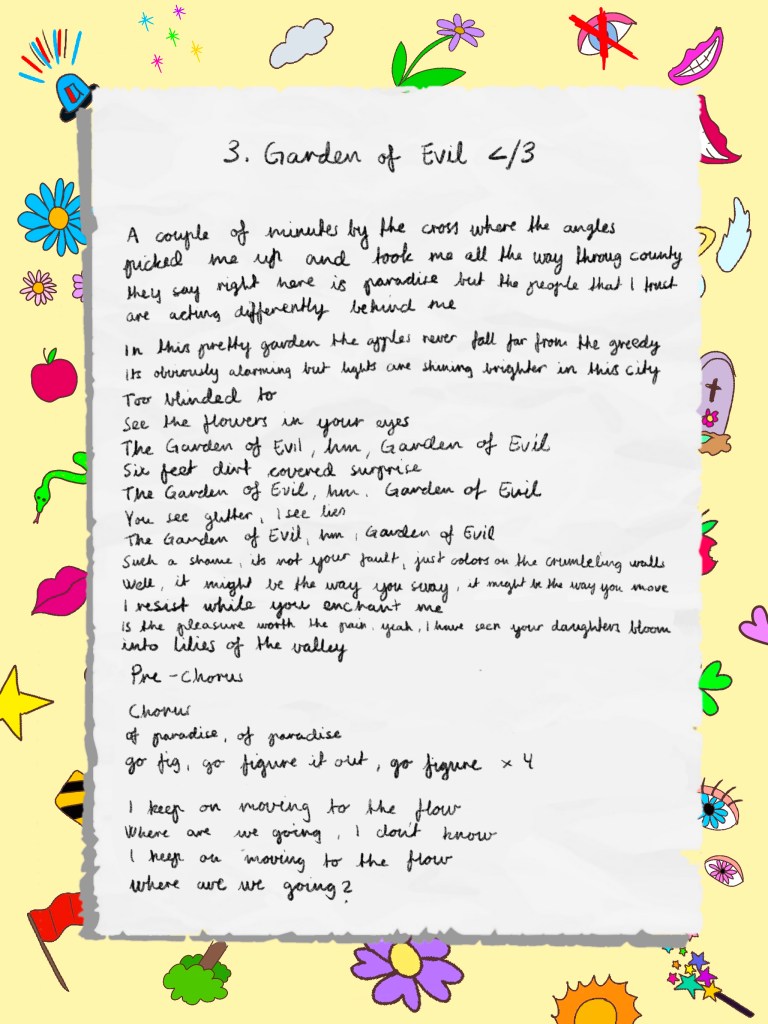 3. Garden of Evil </3
A couple of minutes by the cross where the angles
picked me up and took me all the way throug county
they say right here is paradise but the people that I trust
are acting differently behind me
In this pretty garden the apples never fall far from the greedy
Its obviously alarming but lights are shining brighter in this city
Too blinded to
See the flowers in your eyes
The Garden of Evil, hm, Garden of Evil
Six feet dirt covered surprise
The Garden of Evil, hm. Garden of Evil
You see glitter, I see lies
The Garden of Evil, hm, Garden of Evil
Such a shame, its not your fault, just colors on the crumbeling walls
Well, it might be the way you sway, it might be the way you move
I resist while you enchant me
Is the pleasure worth the pain. yeah, I have seen your daughters bloom
into lilies of the valley
Pre-Chorus
Chorus
of paradise, of paradise
go fig, go figure it out, go figure × 4
I keep on moving to the flow
Where are we going, I dont know
I keep on moving to the flow
where are we going?